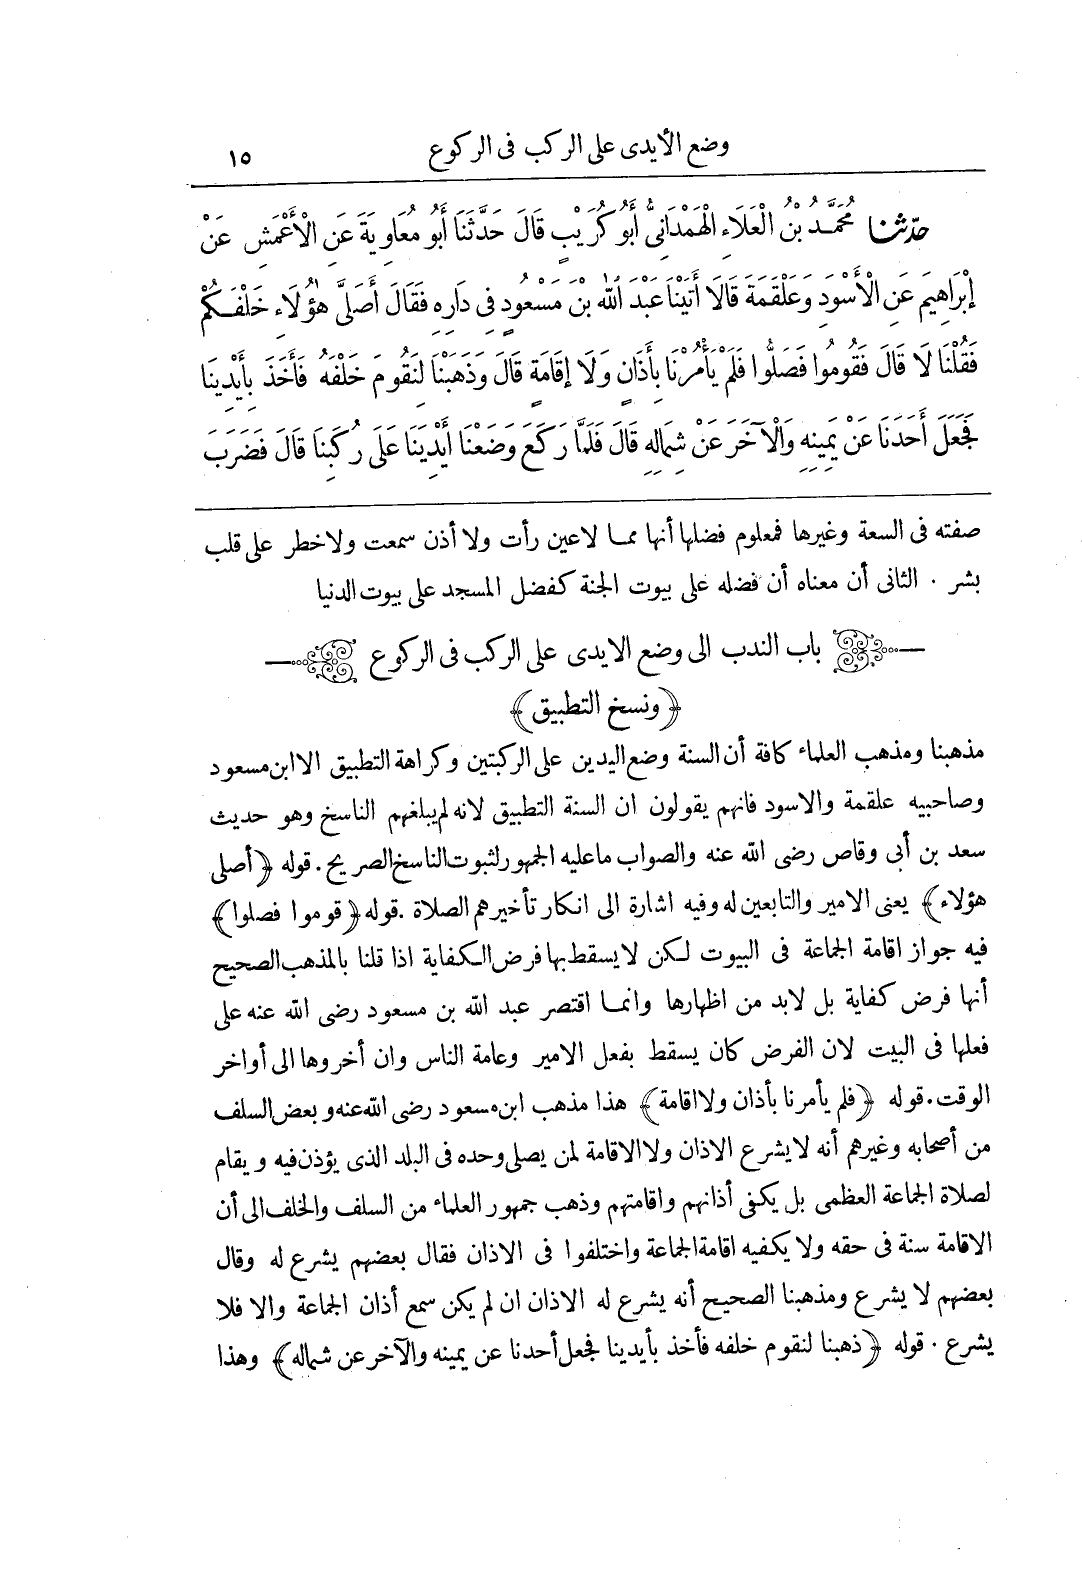 وضع الأيدى على الركب فى الركوع ١٥
حدّثنا مُحَمَّدُ بْنُ الْعَلَاءِ الْهَمْدَانِىُّ أَبُو كُرَيْبٍ قَالَ حَدَّثَنَا أَبُو مُعَاوِيَةَ عَنِ الْأَعْمَشِ عَنْ
إِبْرَاهِيمَ عَنِ الْأَسْوَدِ وَعَلْقَمَةَ قَالَا أَتَيْنَا عَبْدَ اللهِ بْنَ مَسْعُودٍ فِى دَارِهِ فَقَالَ أَصَلَّى هٰؤُلَاءِ خَلْفَكُمْ
فَقُلْنَا لَا قَالَ فَقُومُوا فَصَلُّوا فَلَمْ يَأْمُرْنَا بِأَذَانٍ وَلَا إِقَامَةٍ قَالَ وَذَهَبْنَا لِنَقُومَ خَلْفَهُ فَأَخَذَ بِأَيْدِينَا
فَجَعَلَ أَحَدَنَا عَنْ يَمِينِهِ وَالْآخَرَ عَنْ شِمَالِهِ قَالَ فَلَمَّا رَكَعَ وَضَعْنَا أَيْدِيَنَا عَلَى رُكَبِنَا قَالَ فَضَرَبَ
صفته فى السعة وغيرها فمعلوم فضلها أنها مما لاعين رأت ولا أذن سمعت ولاخطر على قلب
بشر . الثانى أن معناه أن فضله على بيوت الجنة كفضل المسجد على بيوت الدنيا
باب الندب الى وضع الايدى على الركب فى الركوع
﴿ونسخ التطبيق﴾
مذهبنا ومذهب العلماء كافة أن السنة وضع اليدين على الركبتين وكراهة التطبيق الا ابن مسعود
وصاحبيه علقمة والاسود فانهم يقولون ان السنة التطبيق لانه لم يبلغهم الناسخ وهو حديث
سعد بن أبى وقاص رضى الله عنه والصواب ماعليه الجمهور لثبوت الناسخ الصريح . قوله ﴿أصلى
هؤلاء﴾ يعنى الامير والتابعين له وفيه اشارة الى انكار تأخيرهم الصلاة . قوله ﴿قوموا فصلوا﴾
فيه جواز اقامة الجماعة فى البيوت لكن لا يسقط بها فرض الكفاية اذا قلنا بالمذهب الصحيح
أنها فرض كفاية بل لابد من اظهارها وانما اقتصر عبد الله بن مسعود رضى الله عنه على
فعلها فى البيت لان الفرض كان يسقط بفعل الامير وعامة الناس وان أخروها الى أواخر
الوقت . قوله ﴿فلم يأمرنا بأذان ولا اقامة﴾ هذا مذهب ابن مسعود رضى الله عنه وبعض السلف
من أصحابه وغيرهم أنه لا يشرع الاذان ولا الاقامة لمن يصلى وحده فى البلد الذى يؤذن فيه ويقام
لصلاة الجماعة العظمى بل يكفى أذانهم واقامتهم وذهب جمهور العلماء من السلف والخلف الى أن
الاقامة سنة فى حقه ولا يكفيه اقامة الجماعة واختلفوا فى الاذان فقال بعضهم يشرع له وقال
بعضهم لا يشرع ومذهبنا الصحيح أنه يشرع له الاذان ان لم يكن سمع أذان الجماعة والا فلا
يشرع . قوله ﴿ذهبنا لنقوم خلفه فأخذ بأيدينا فجعل أحدنا عن يمينه والآخر عن شماله﴾ وهذا